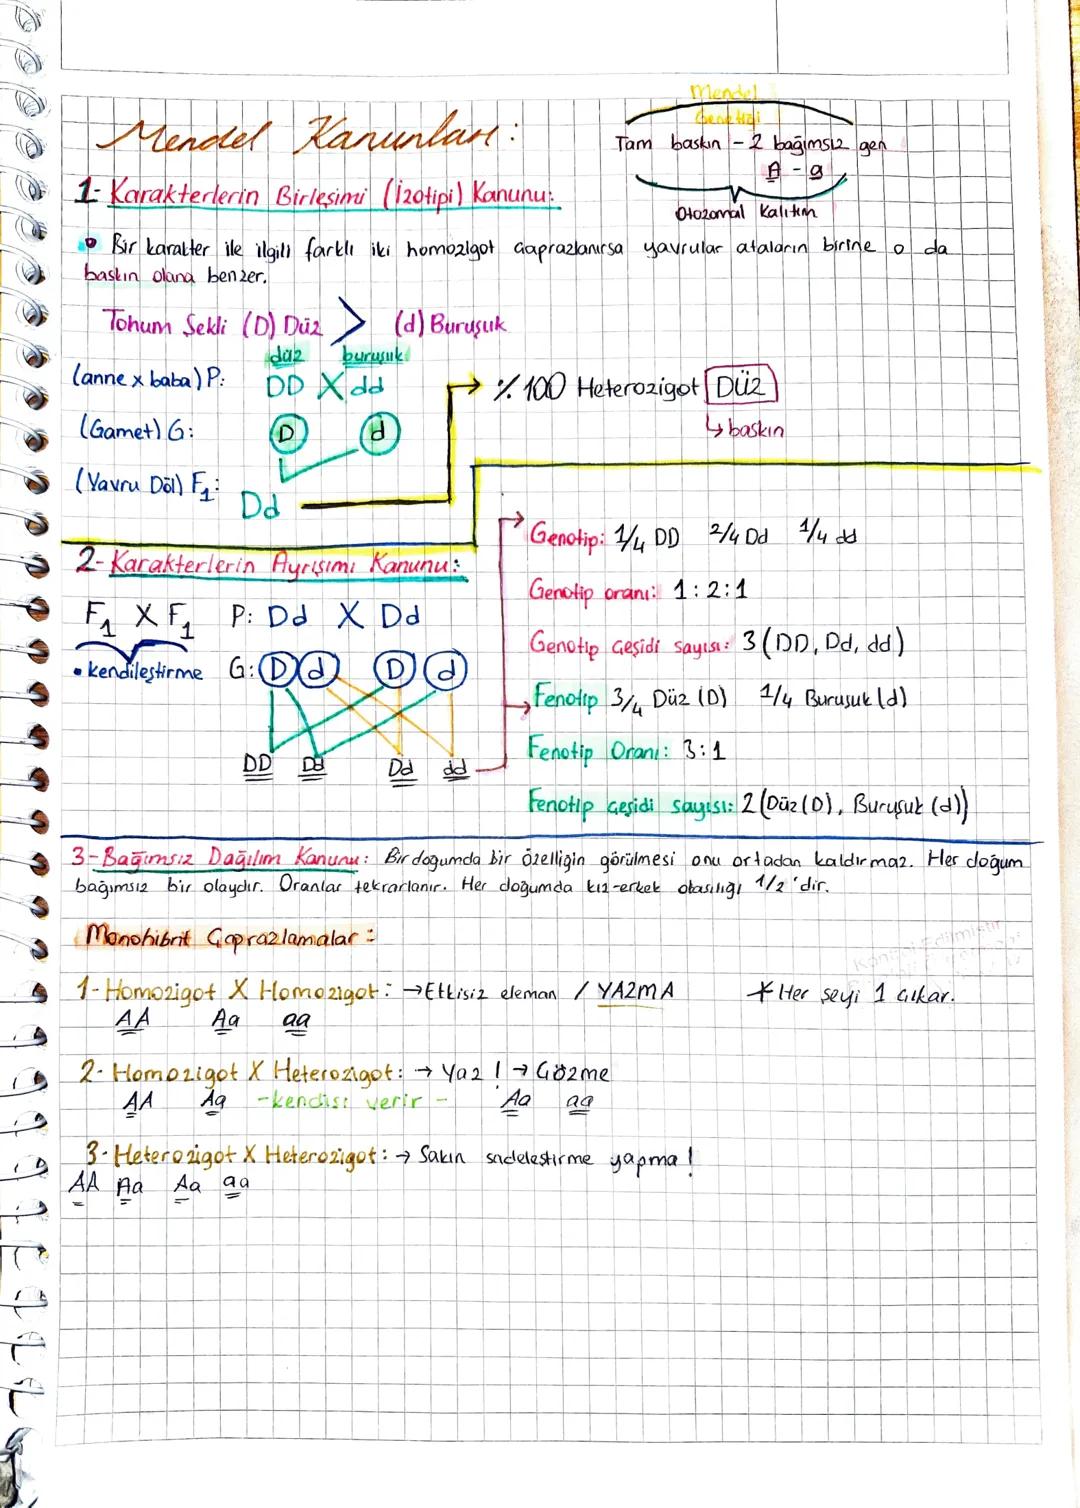 Mendel Genetiği
Tam baskın - 2 bağımsız gen
A - a
Otozomal Kalıtım
Mendel Kanunları:
1- Karakterlerin Birleşimi (İzotipi) Kanunu:
• Bir karakter ile ilgili farklı iki homozigot çaprazlanırsa yavrular ataların birine o da
baskın olana benzer.
Tohum Şekli (D) Düz > (d) Buruşuk
düz buruşuk
(anne x baba) P: DD X dd
(Gamet) G: D d
(Yavru Döl) F1: Dd
% 100 Heterozigot Düz
↳ baskın
2- Karakterlerin Ayrışımı Kanunu:
F1 X F1 P: Dd X Dd
• kendileştirme G: D d D d
DD Dd Dd dd
Genotip: 1/4 DD 2/4 Dd 1/4 dd
Genotip oranı: 1:2:1
Genotip çeşidi sayısı: 3 (DD, Dd, dd)
Fenotip 3/4 Düz (D) 1/4 Buruşuk (d)
Fenotip Oranı: 3:1
Fenotip çeşidi sayısı: 2 (Düz (D), Buruşuk (d))
3- Bağımsız Dağılım Kanunu: Bir doğumda bir özelliğin görülmesi onu ortadan kaldırmaz. Her doğum
bağımsız bir olaydır. Oranlar tekrarlanır. Her doğumda kız-erkek olasılığı 1/2 'dir.
Monohibrit Çaprazlamalar:
1- Homozigot X Homozigot: → Etkisiz eleman / YAZMA * Her şeyi 1 çıkar.
AA Aa aa
2- Homozigot X Heterozigot: → Yaz ! → Çözme
AA Aa - kendisi verir - Aa aa
3- Heterozigot X Heterozigot: → Sakın sadeleştirme yapma !
AA Aa Aa aa